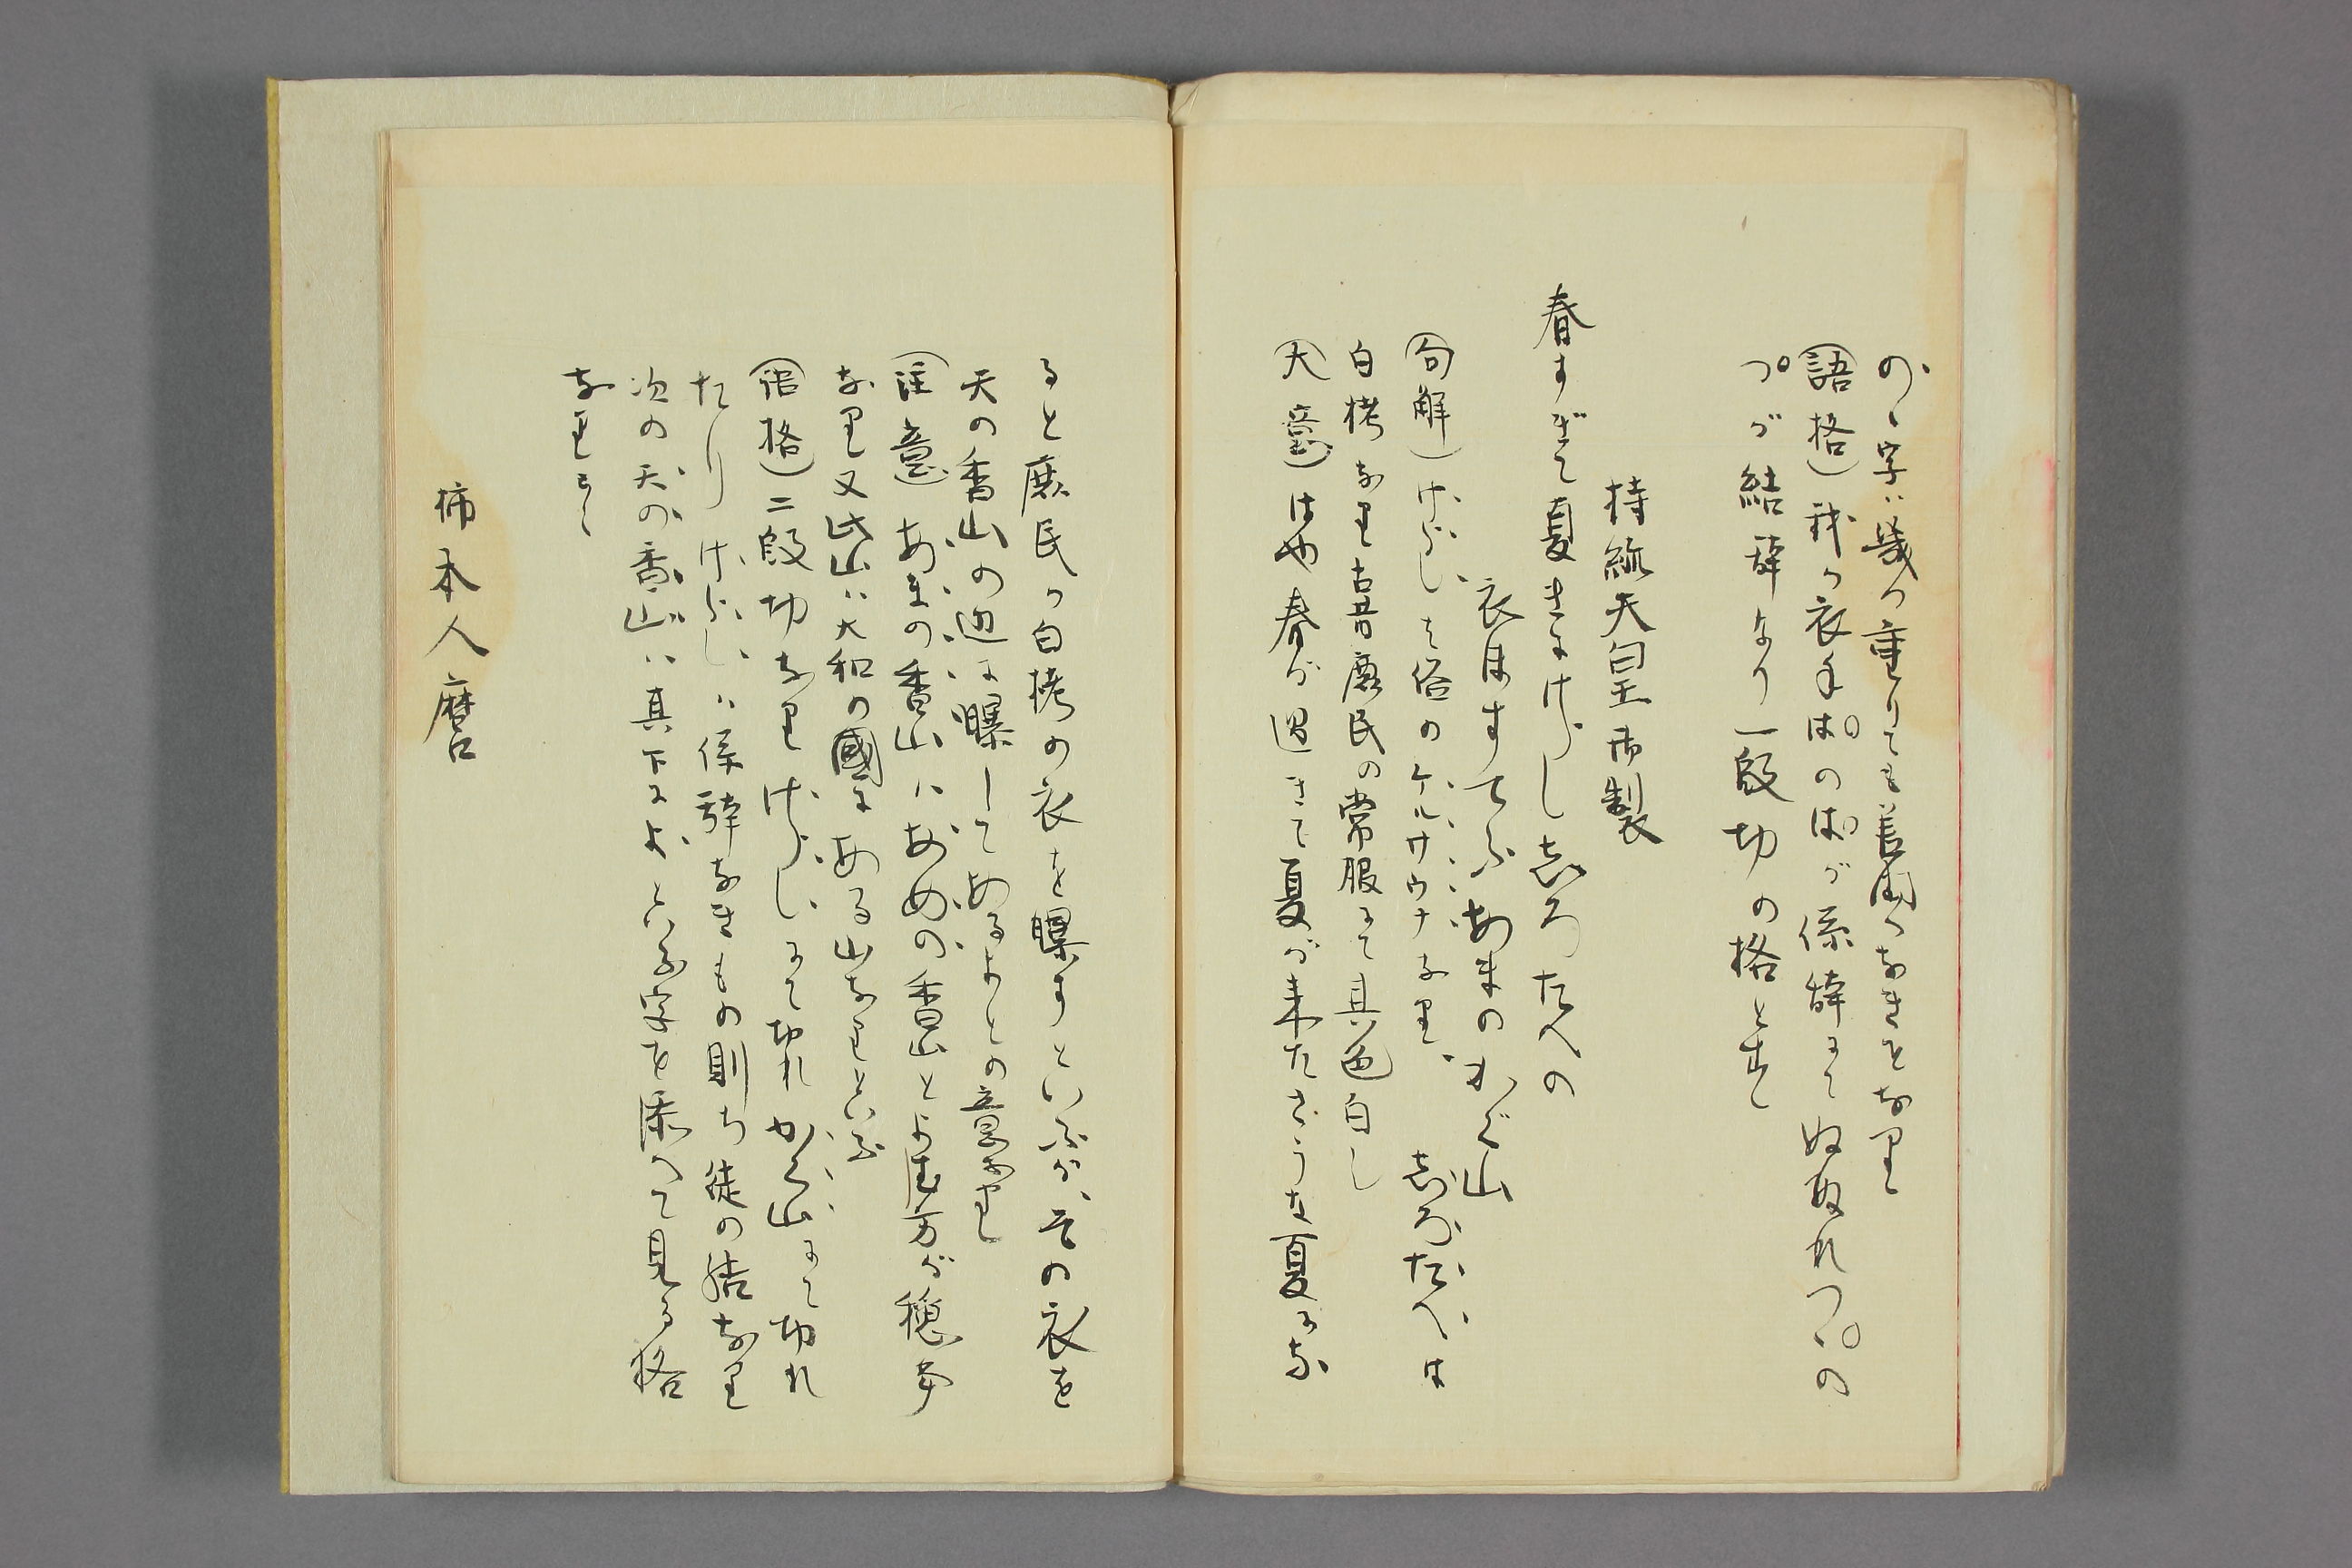 の、字ハ幾つ重りても差閊へなきとなり
(語格)我が衣手はのはが係辞にてぬぬれつゝの
つが結辞なり一段切の格とす
持統天皇御製
春すぎて夏きにけらし志ろたへの
衣ほすてふあまのかぐ山
(句解)けらしは俗のケルサウナなり、志ろたへは
白栲なり古昔庶民の常服にて其色白し
(大意)はや春が過きて夏が来たさうな夏にな
ると庶民が白栲の衣を曝すといふが、その衣を
天の香山の辺に曝してあるよとの意なり
(注意)あまの香山ハあめの香山とよむ方が穏当
なり又此山ハ大和の國にある山なりといふ
(語格)二段切なりけらしにて切れかく山にて切れ
たりけらしハ係辞なきもの則ち徒の結なり
次の天の香山ハ其下によといふ字を添へて見る格
なりとす
柿本人麿